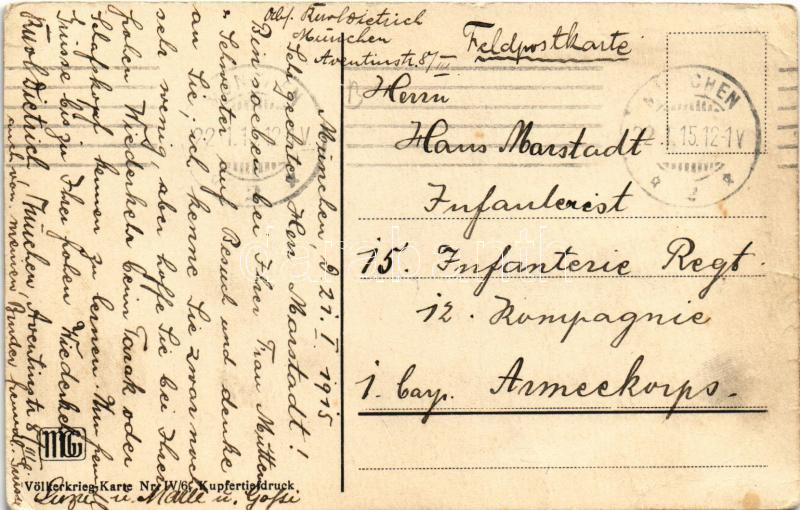 Abs. Kurl Dietrich
München
Aventinstr. 8/III
Feldpostkarte
MÜNCHEN
22.1.15.12-1V
2
Herrn
Hans Marstadt
Infanterist
15. Infanterie Regt.
12. Kompagnie
1. bayr. Armeekorps.
München, d. 21. I. 1915
Sehr geehrter Herr Marstadt!
Bin soeben bei Ihrer Frau Mutter
u. Schwester auf Besuch und denke
an Sie, ich kenne Sie zwar noch
sehr wenig, aber hoffe Sie bei Ihrer
frohen Wiederkehr beim Tarok oder
Schafskopf kennen zu lernen. Nun
Grüsse bis zu Ihrer frohen Wiederkehr
Kurl Dietrich, München Aventinstr. 8/III
auch von meinem Bruder
MG
Völkerkrieg-Karte Nr. IV/6. Kupfertiefdruck
u. Malle u.
darabanth